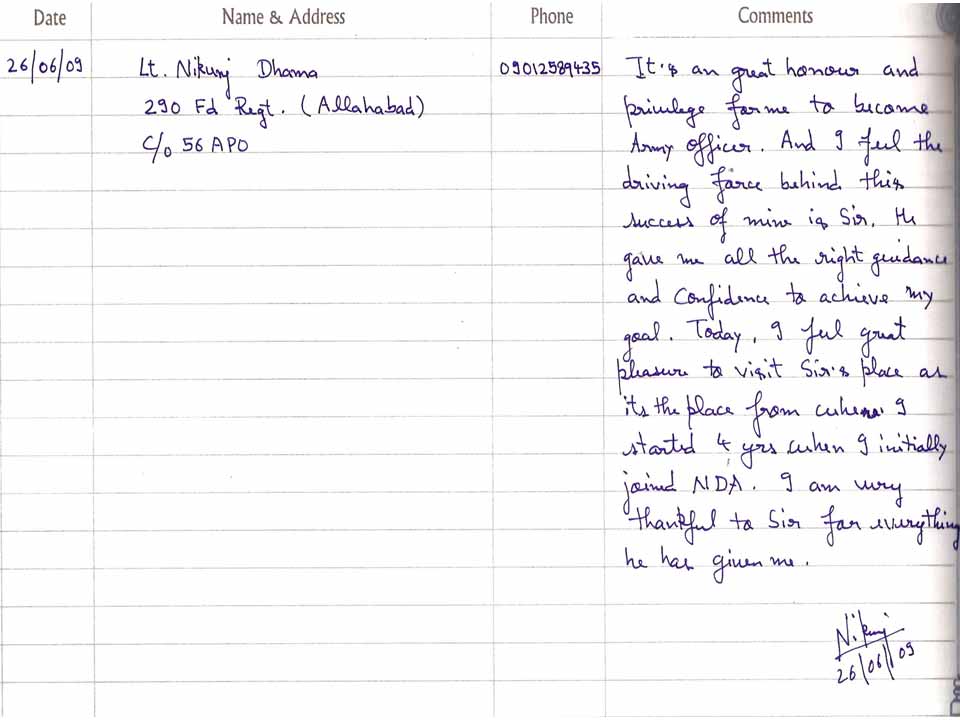 Date Name & Address Phone Comments
26/06/09 Lt. Nikunj Dhama 09012589435 It's an great honour and
290 Fd Regt. (Allahabad) privilege for me to become
C/o 56 APO Army officer. And I feel the
driving force behind this
success of mine is Sir. He
gave me all the right guidance
and confidence to achieve my
goal. Today, I feel great
pleasure to visit Sir's place as
its the place from where I
started 4 yrs when I initially
joined NDA. I am very
thankful to Sir for everything
he has given me.
Nikunj
26/06/09